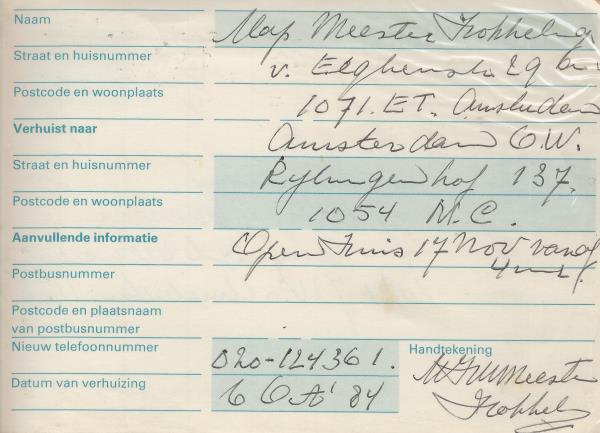 Naam Meester
Straat en huisnummer v. 29
Postcode en woonplaats 1071. ET.
Verhuist naar Amsterdam O.W.
Straat en huisnummer 137.
Postcode en woonplaats 1054 M.C.
Aanvullende informatie Open Huis 17 Nov vanaf
Postbusnummer 4 uur.
Postcode en plaatsnaam
van postbusnummer
Nieuw telefoonnummer 020-124361. Handtekening
Datum van verhuizing 6 Okt 84 Meester